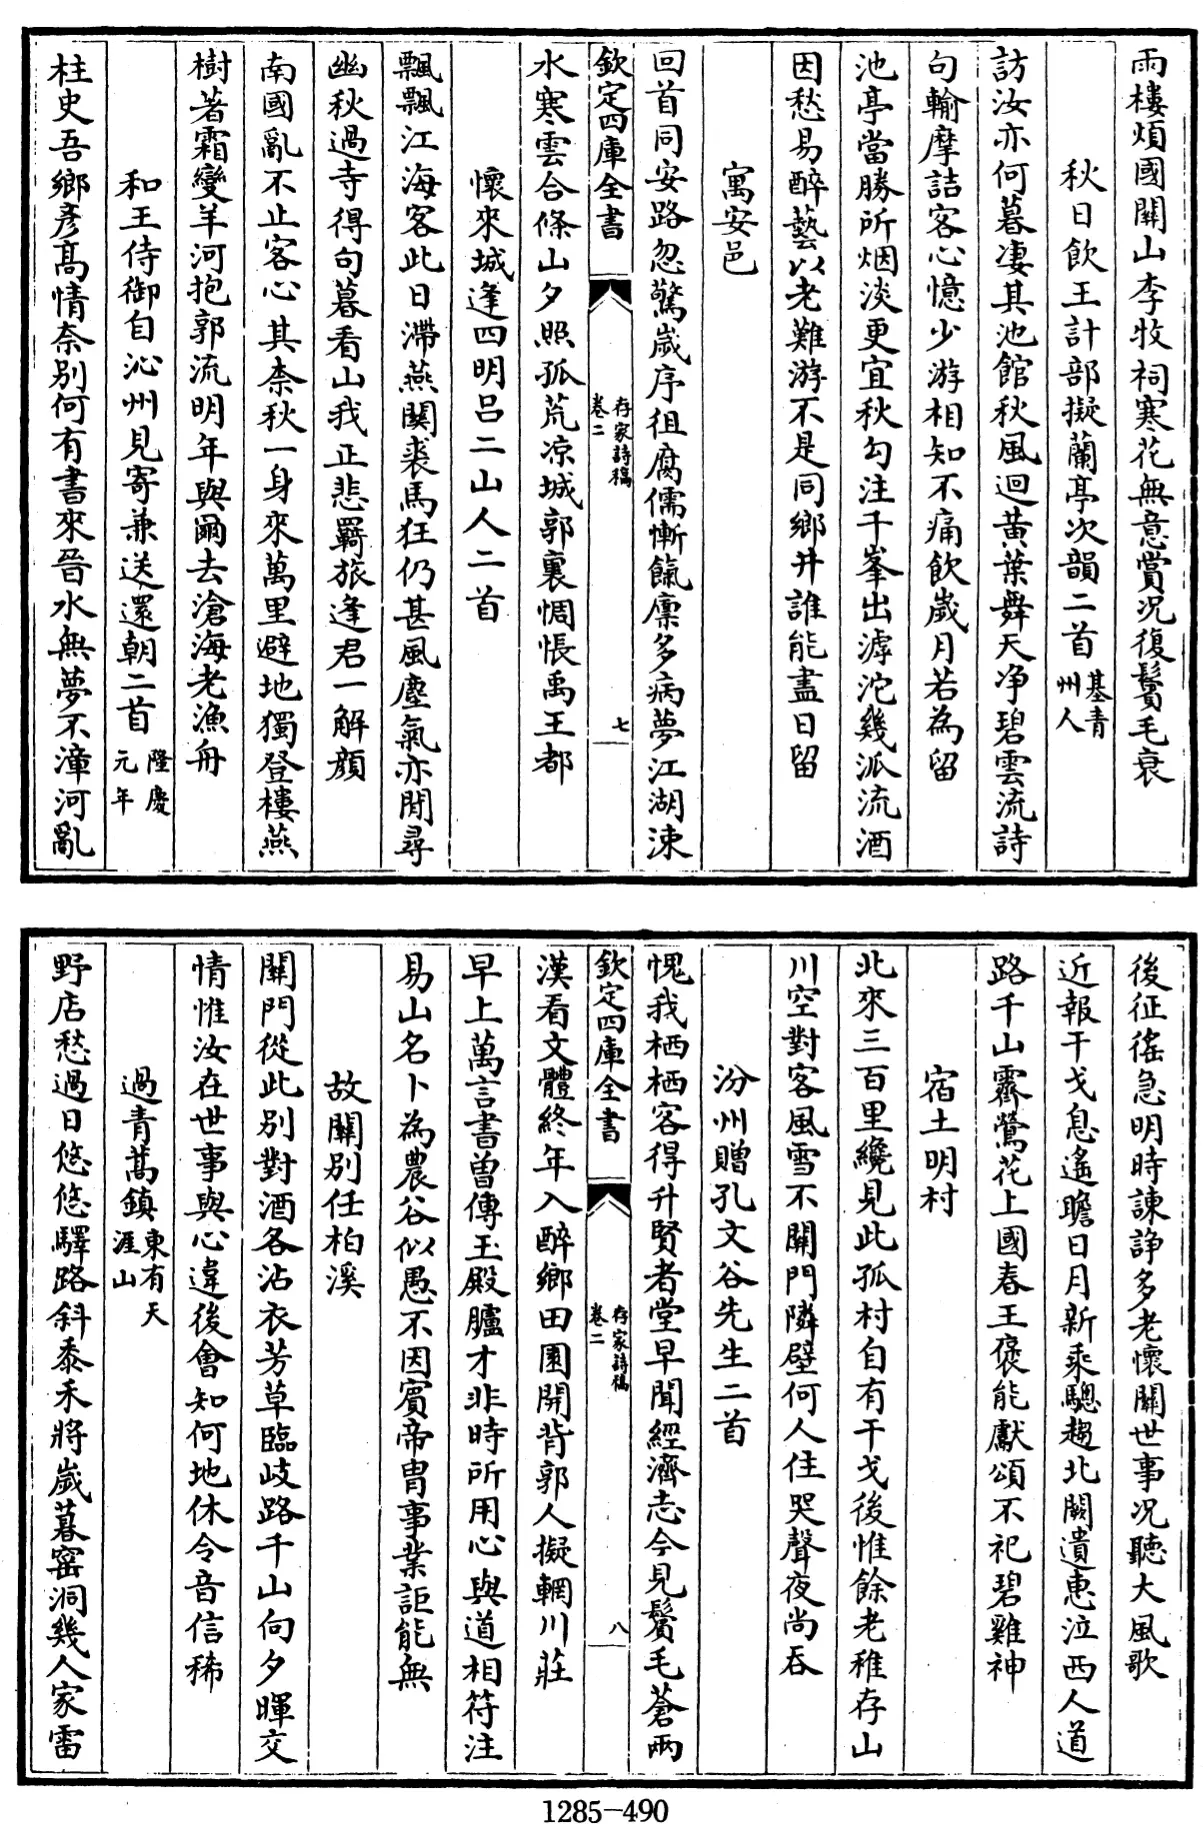 雨樓煩國關山李牧祠寒花無意賞况復鬢毛衰
秋日飲王計部擬蘭亭次韻二首基青州人
訪汝亦何暮凄其池館秋風迴黄葉舞天净碧雲流詩
句輸摩詰客心憶少游相知不痛飲歲月若為留
池亭當勝所烟淡更宜秋勾注千峯出滹沱幾派流酒
因愁易醉藝以老難游不是同鄉井誰能盡日留
寓安邑
回首同安路忽驚歲序徂腐儒慚餼廩多病夢江湖涑
欽定四庫全書
存家詩稿
卷二
七
水寒雲合條山夕照孤荒凉城郭裏惆悵禹王都
懷來城逢四明吕二山人二首
飄飄江海客此日滯燕關裘馬狂仍甚風塵氣亦閒尋
幽秋過寺得句暮看山我正悲羇旅逢君一解顔
南國亂不止客心其柰秋一身來萬里避地獨登樓燕
樹著霜變羊河抱郭流明年與爾去滄海老漁舟
和王侍御自沁州見寄兼送還朝二首隆慶元年
柱史吾鄉彦高情奈别何有書來晉水無夢不漳河亂
後征徭急明時諫諍多老懷關世事况聽大風歌
近報干戈息遥瞻日月新乘驄趨北闕遺惠泣西人道
路千山霽鶯花上國春王褒能獻頌不祀碧雞神
宿土明村
北來三百里纔見此孤村自有干戈後惟餘老稚存山
川空對客風雪不關門隣壁何人住哭聲夜尚吞
汾州贈孔文谷先生二首
愧我栖栖客得升賢者堂早聞經濟志今見鬢毛蒼兩
欽定四庫全書
存家詩稿
卷二
八
漢看文體終年入醉鄉田園開背郭人擬輞川莊
早上萬言書曽傳玉殿臚才非時所用心與道相符注
易山名卜為農谷似愚不因賓帝胄事業詎能無
故關别任柏溪
關門從此别對酒各沾衣芳草臨岐路千山向夕暉交
情惟汝在世事與心違後會知何地休令音信稀
過青蒿鎮東有天涯山
野店愁過日悠悠驛路斜黍禾將歲暮窑洞幾人家雷
1285-490